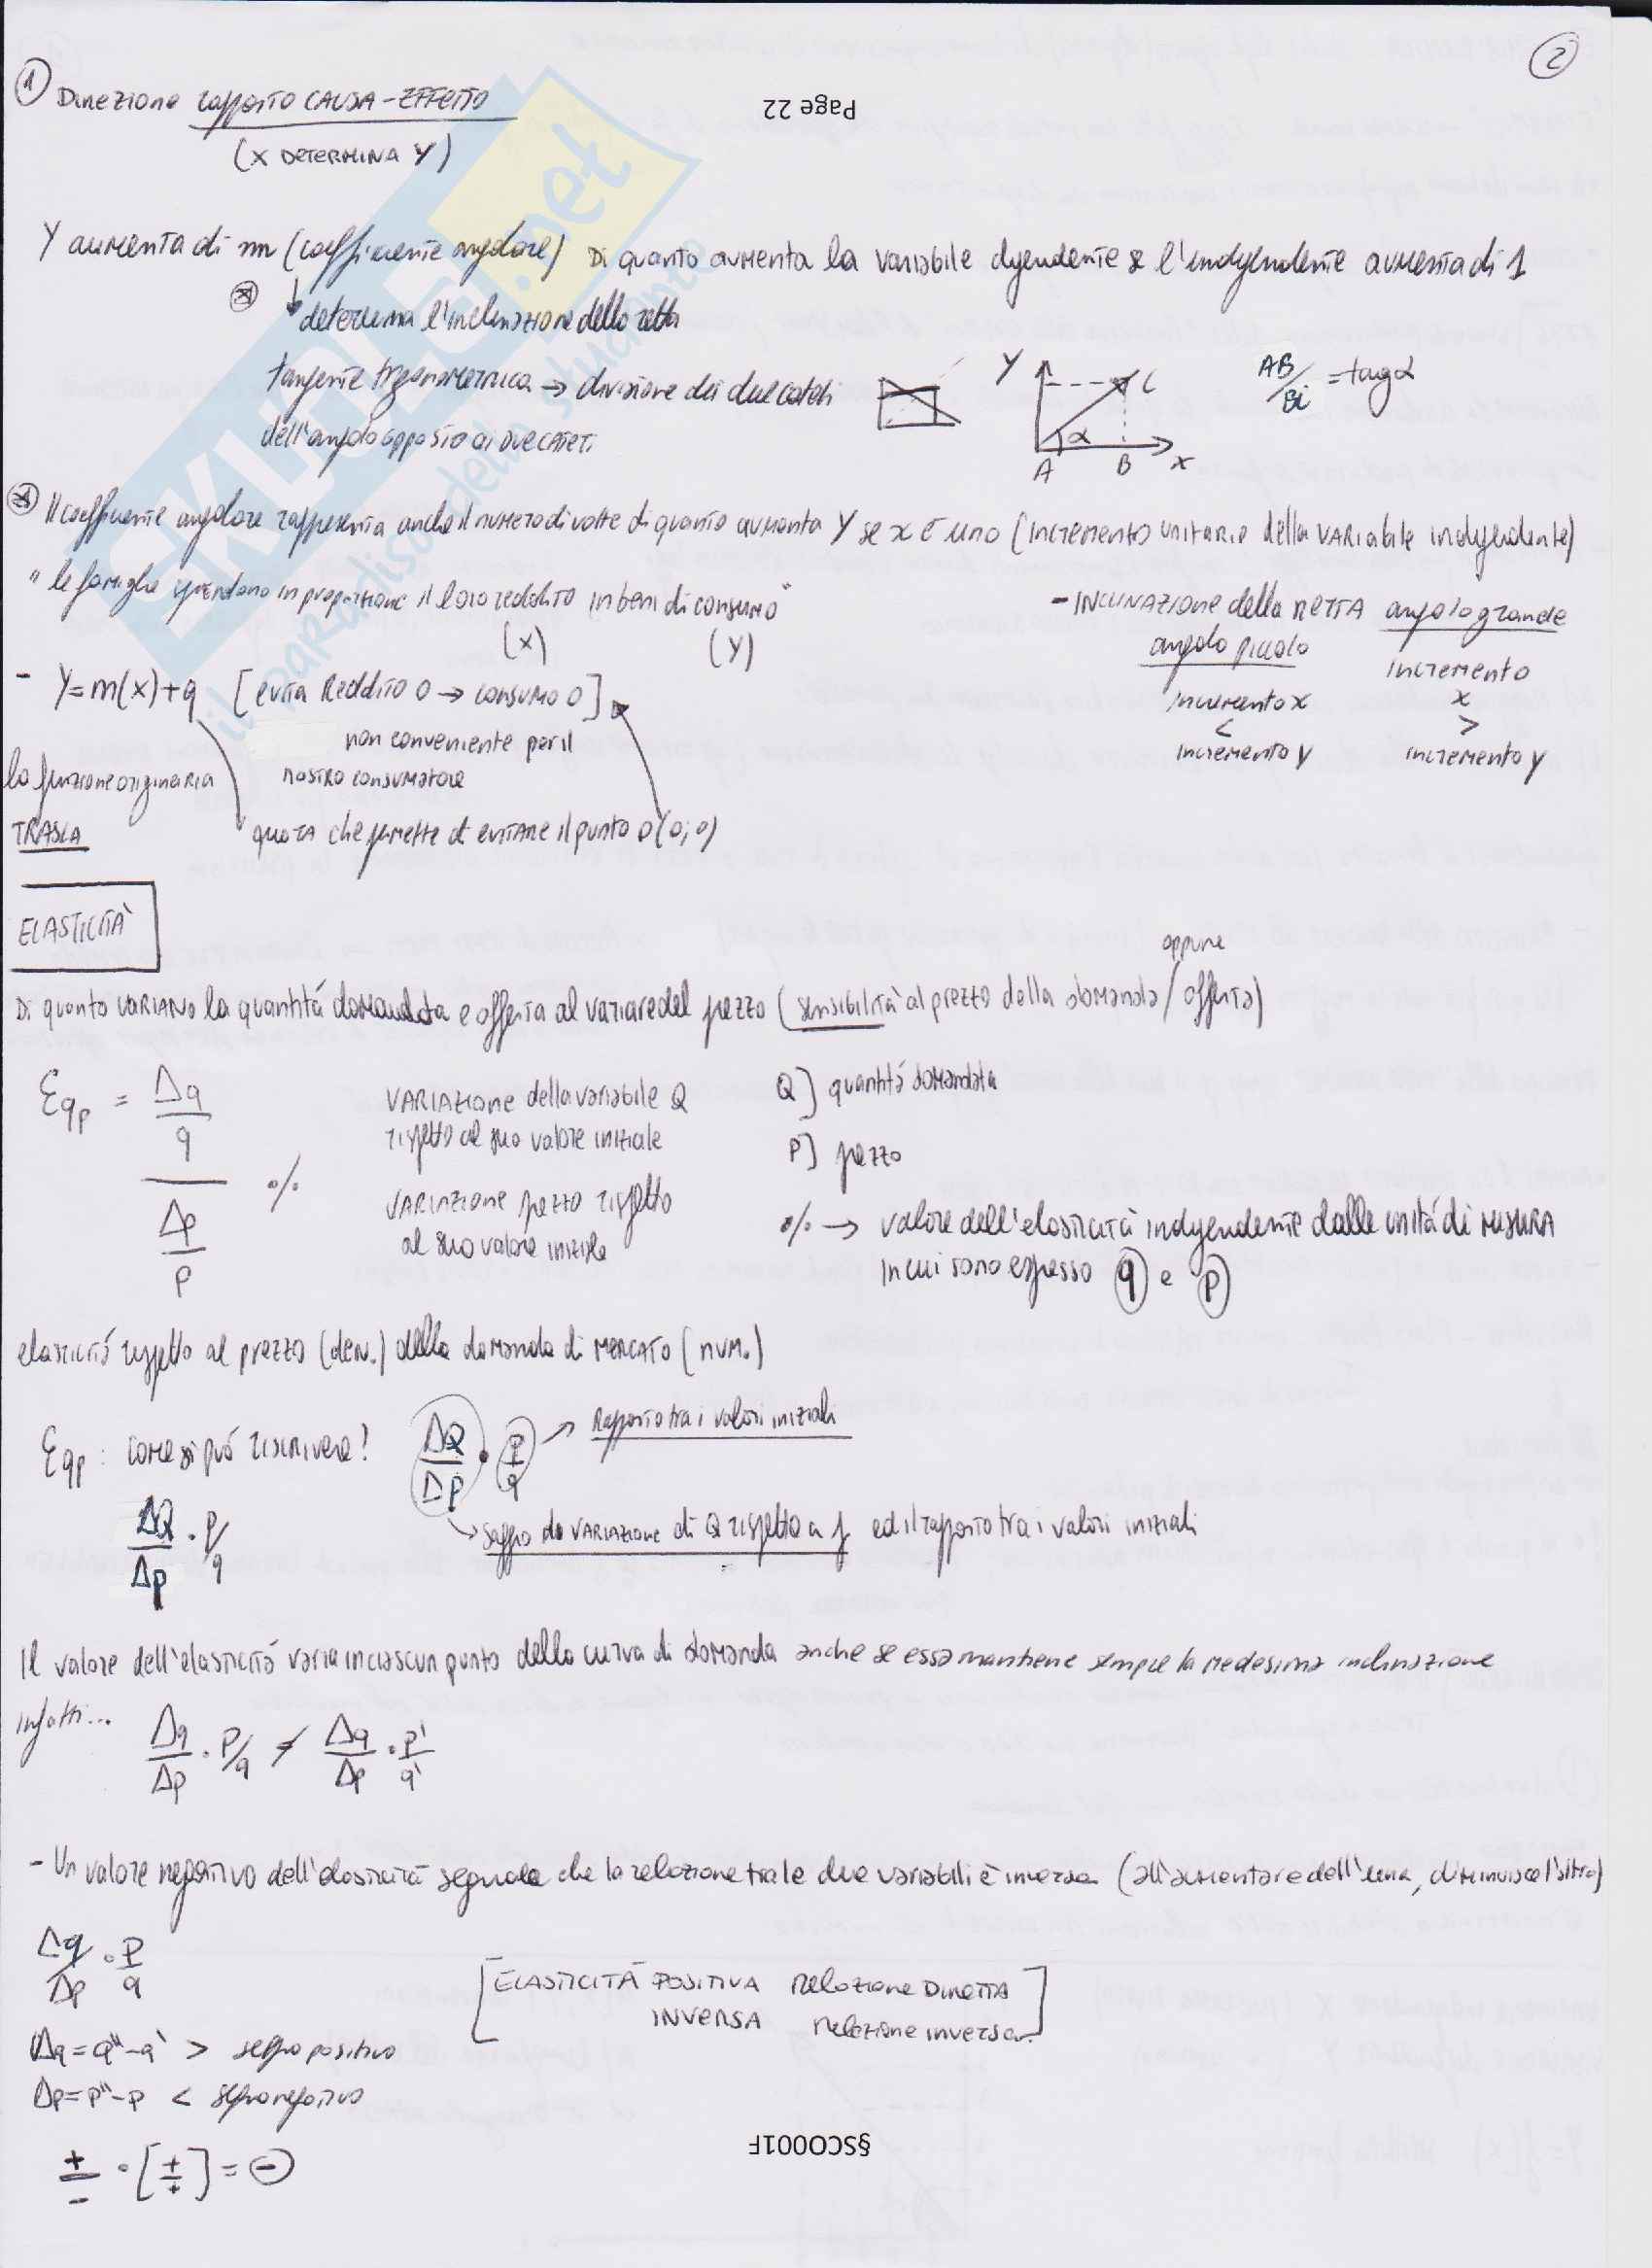 2
1 Direzione rapporto CAUSA-EFFETTO
Page 22
(X DETERMINA Y)
Y aumenta di m (coefficiente angolare) Di quanto aumenta la variabile dipendente se l'indipendente aumenta di 1
determina l'inclinazione della retta
tangente trigonometrica → divisione dei due cateti
dell'angolo opposto ai due cateti
Y
C
α
A B x
AB/BC = tag α
Il coefficiente angolare rappresenta anche il numero di volte di quanto aumenta Y se x è uno (incremento unitario della variabile indipendente)
"le famiglie spendono in proporzione il loro reddito in beni di consumo"
(x) (y)
- INCLINAZIONE della RETTA angolo grande
angolo piccolo
incremento
incremento x x
< >
incremento y incremento y
- Y=m(x)+q [evita Reddito 0 → consumo 0]
non conveniente per il
nostro consumatore
la funzione originaria
TRASLA
quota che permette di evitare il punto 0(0;0)
ELASTICITÀ
oppure
Di quanto VARIANO la quantità domandata e offerta al variare del prezzo (sensibilità al prezzo della domanda/offerta)
Eqp = Δq/q / Δp/p %
VARIAZIONE della variabile Q
rispetto al suo valore iniziale
VARIAZIONE prezzo rispetto
al suo valore iniziale
Q] quantità domandata
P] prezzo
% → valore dell'elasticità indipendente dalle unità di misura
in cui sono espresso q e p
elasticità rispetto al prezzo (den.) della domanda di mercato (num.)
Eqp : come si può riscrivere? ΔQ/Δp · P/q → Rapporto tra i valori iniziali
ΔQ/Δp · P/q
saggio di VARIAZIONE di Q rispetto a p ed il rapporto tra i valori iniziali
Il valore dell'elasticità varia in ciascun punto della curva di domanda anche se essa mantiene sempre la medesima inclinazione
infatti... Δq/Δp · P/q ≠ Δq/Δp · p'/q'
- Un valore negativo dell'elasticità segnala che la relazione tra le due variabili è inversa (all'aumentare dell'una, diminuisce l'altra)
Δq/Δp · P/q
[ELASTICITÀ POSITIVA Relazione Diretta
INVERSA relazione inversa]
Δq = q"-q' > segno positivo
Δp = p"-p < segno negativo
+/- · [+/+] = -
§SCO001F